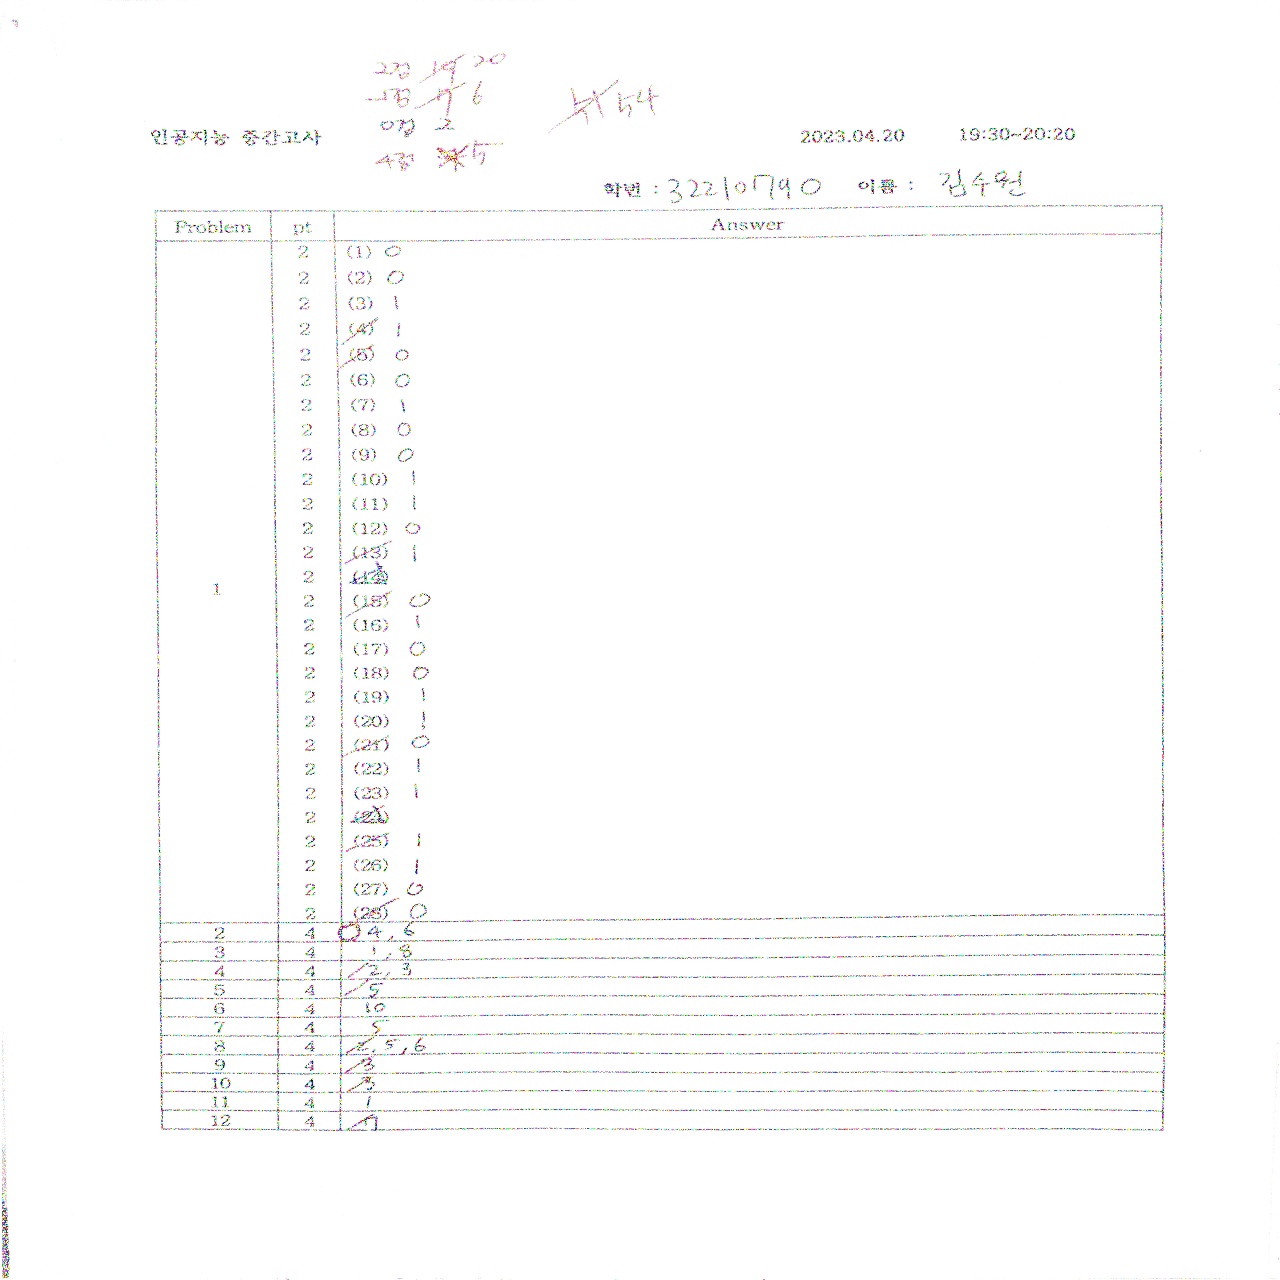 2점 19 20
-1점 7 6
0점 2
4점 5
54
인공지능 중간고사 2023.04.20 19:30~20:20
학번 : 32210790 이름 : 김수원
Problem pt Answer
1
2 (1) 0
2 (2) 0
2 (3) 1
2 (4) 1
2 (5) 0
2 (6) 0
2 (7) 1
2 (8) 0
2 (9) 0
2 (10) 1
2 (11) 1
2 (12) 0
2 (13) 1
2 (14)
2 (15) 0
2 (16) 1
2 (17) 0
2 (18) 0
2 (19) 1
2 (20) 1
2 (21) 0
2 (22) 1
2 (23) 1
2 (24)
2 (25) 1
2 (26) 1
2 (27) 0
2 (28) 0
2 4 4, 6
3 4 1, 8
4 4 2, 3
5 4 5
6 4 10
7 4 5
8 4 2, 5, 6
9 4 3
10 4 3
11 4 1
12 4 7